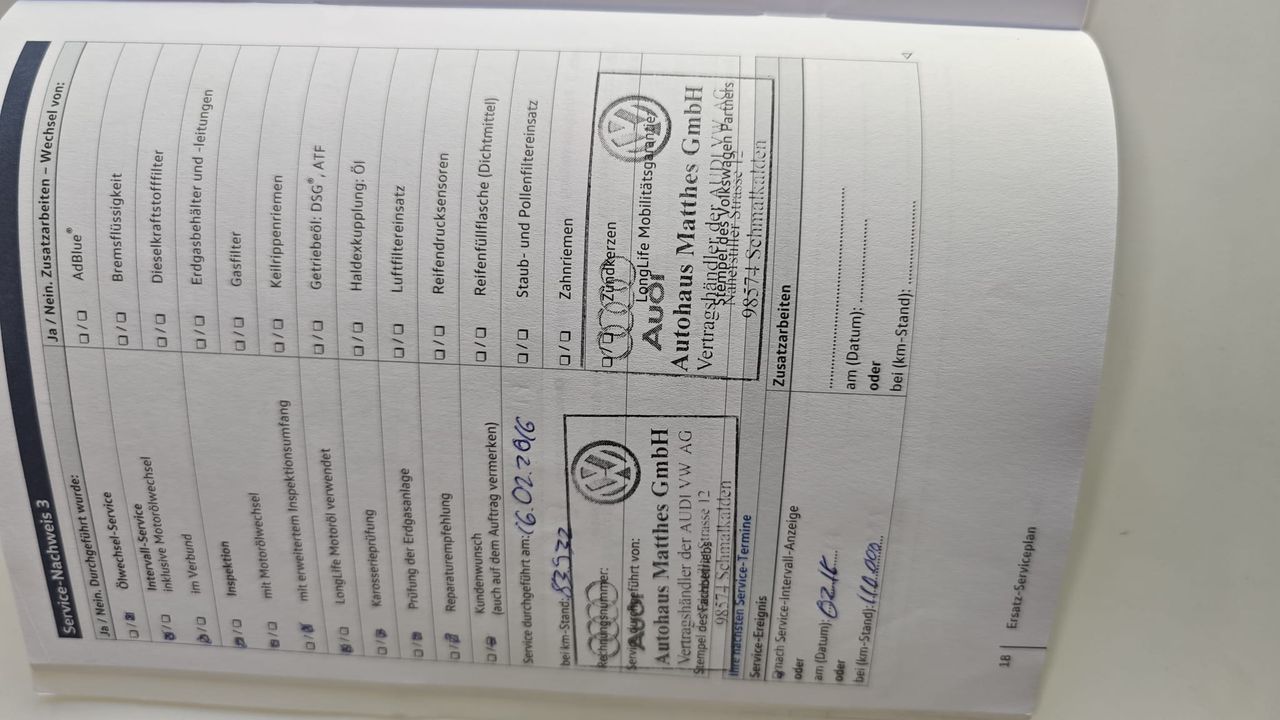 Service-Nachweis 3
Ja / Nein. Durchgeführt wurde:
Ölwechsel-Service
Intervall-Service
inklusive Motorölwechsel
im Verbund
Inspektion
mit Motorölwechsel
mit erweitertem Inspektionsumfang
LongLife Motoröl verwendet
Karosserieprüfung
Prüfung der Erdgasanlage
Reparaturempfehlung
Kundenwunsch
(auch auf dem Auftrag vermerken)
Service durchgeführt am: 16.02.2016
bei km-Stand: 83932
Rechnungsnummer:
Service durchgeführt von:
Audi
Autohaus Matthes GmbH
Vertragshändler der AUDI VW AG
Stempel des Fachbetriebs
98574 Schmalkalden
Ihre nächsten Service-Termine
Service-Ereignis
nach Service-Intervall-Anzeige
oder
am (Datum):
oder
bei (km-Stand):
Ja / Nein. Zusatzarbeiten – Wechsel von:
AdBlue®
Bremsflüssigkeit
Dieselkraftstofffilter
Erdgasbehälter und -leitungen
Gasfilter
Keilrippenriemen
Getriebeöl: DSG®, ATF
Haldexkupplung: Öl
Luftfiltereinsatz
Reifendrucksensoren
Reifenfüllflasche (Dichtmittel)
Staub- und Pollenfiltereinsatz
Zahnriemen
Zündkerzen
LongLife Mobilitätsgarantie
Audi
Autohaus Matthes GmbH
Vertragshändler der AUDI VW AG
Stempel des Volkswagen Partners
98574 Schmalkalden
Zusatzarbeiten
am (Datum):
oder
bei (km-Stand):
18
Ersatz-Serviceplan